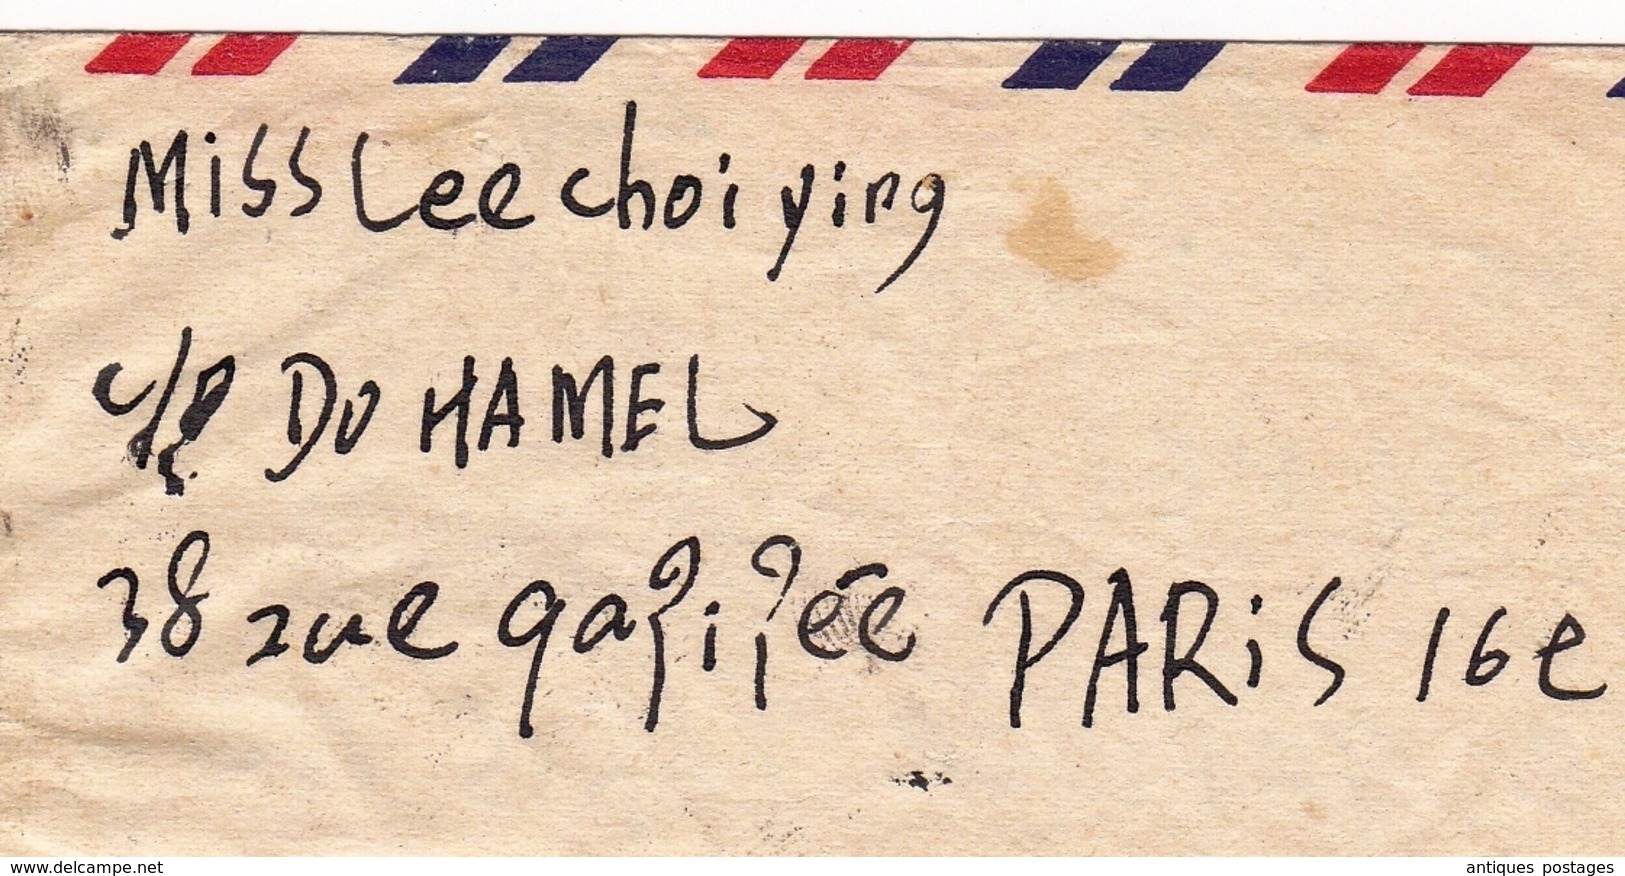 Miss Lee choi ying
c/o DU HAMEL
38 rue gazizée PARiS 16e
www.delcampe.net
antiques postages